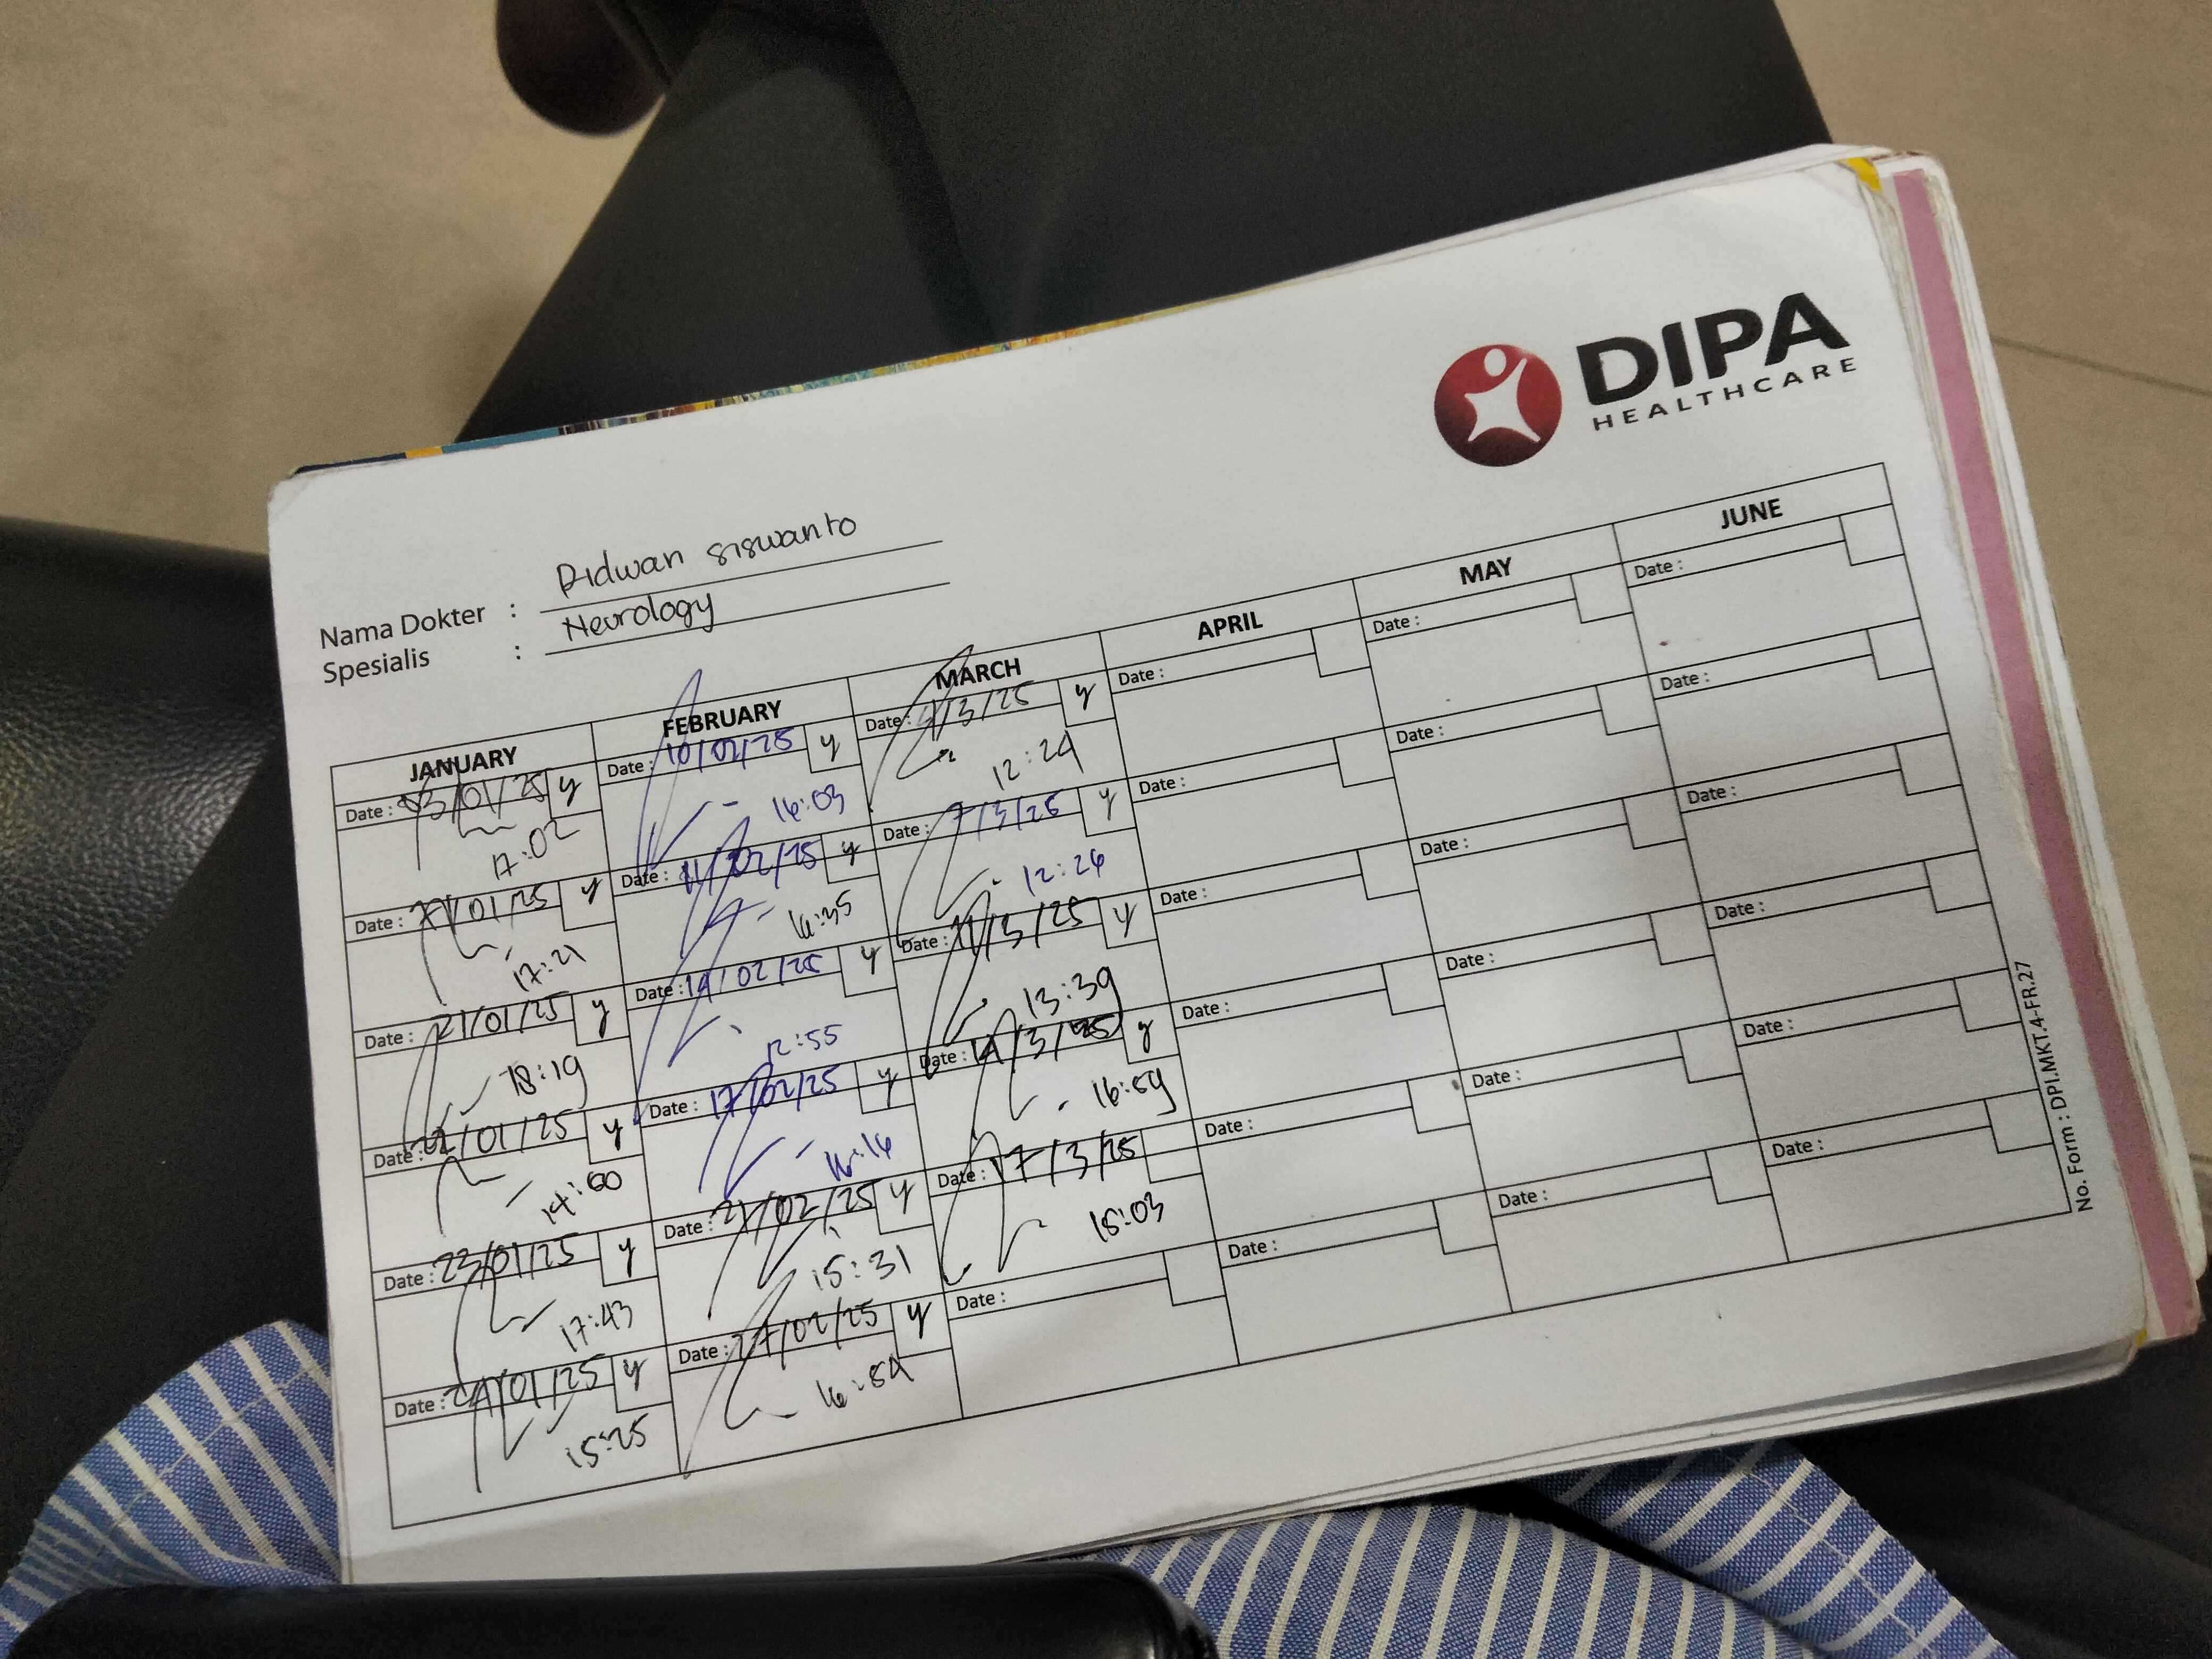 DIPA
HEALTHCARE
Nama Dokter : Ridwan siswanto
Spesialis : Neurology
JANUARY FEBRUARY MARCH APRIL MAY JUNE
Date : 03/01/25 y Date : 10/02/25 y Date : /3/25 y Date : Date : Date :
17:02 16:03 12:24
Date : /01/25 y Date : 11/02/25 y Date : 7/3/25 y Date : Date : Date :
17:21 16:35 12:26
Date : 21/01/25 y Date : 14/02/25 y Date : 11/3/25 y Date : Date : Date :
18:19 12:55 13:39
Date : 22/01/25 y Date : 17/02/25 y Date : 14/3/25 y Date : Date : Date :
14:00 16:16 16:59
Date : 23/01/25 y Date : 21/02/25 y Date : 17/3/25 Date : Date : Date :
17:43 15:31 15:03
Date : 24/01/25 y Date : 27/02/25 y Date : Date : Date : Date :
15:25 16:54
No. Form : DPI.MKT.4-FR.27